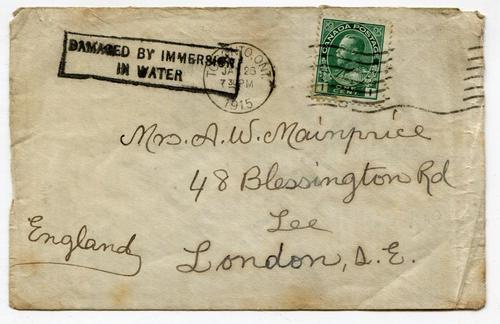 DAMAGED BY IMMERSION
IN WATER
TORONTO, ONT.
JA 23
7 30 PM
1915
CANADA POSTAGE
1 1
ONE
CENT
Mrs. A. W. Mainprice
48 Blessington Rd
Lee
London, S.E.
England